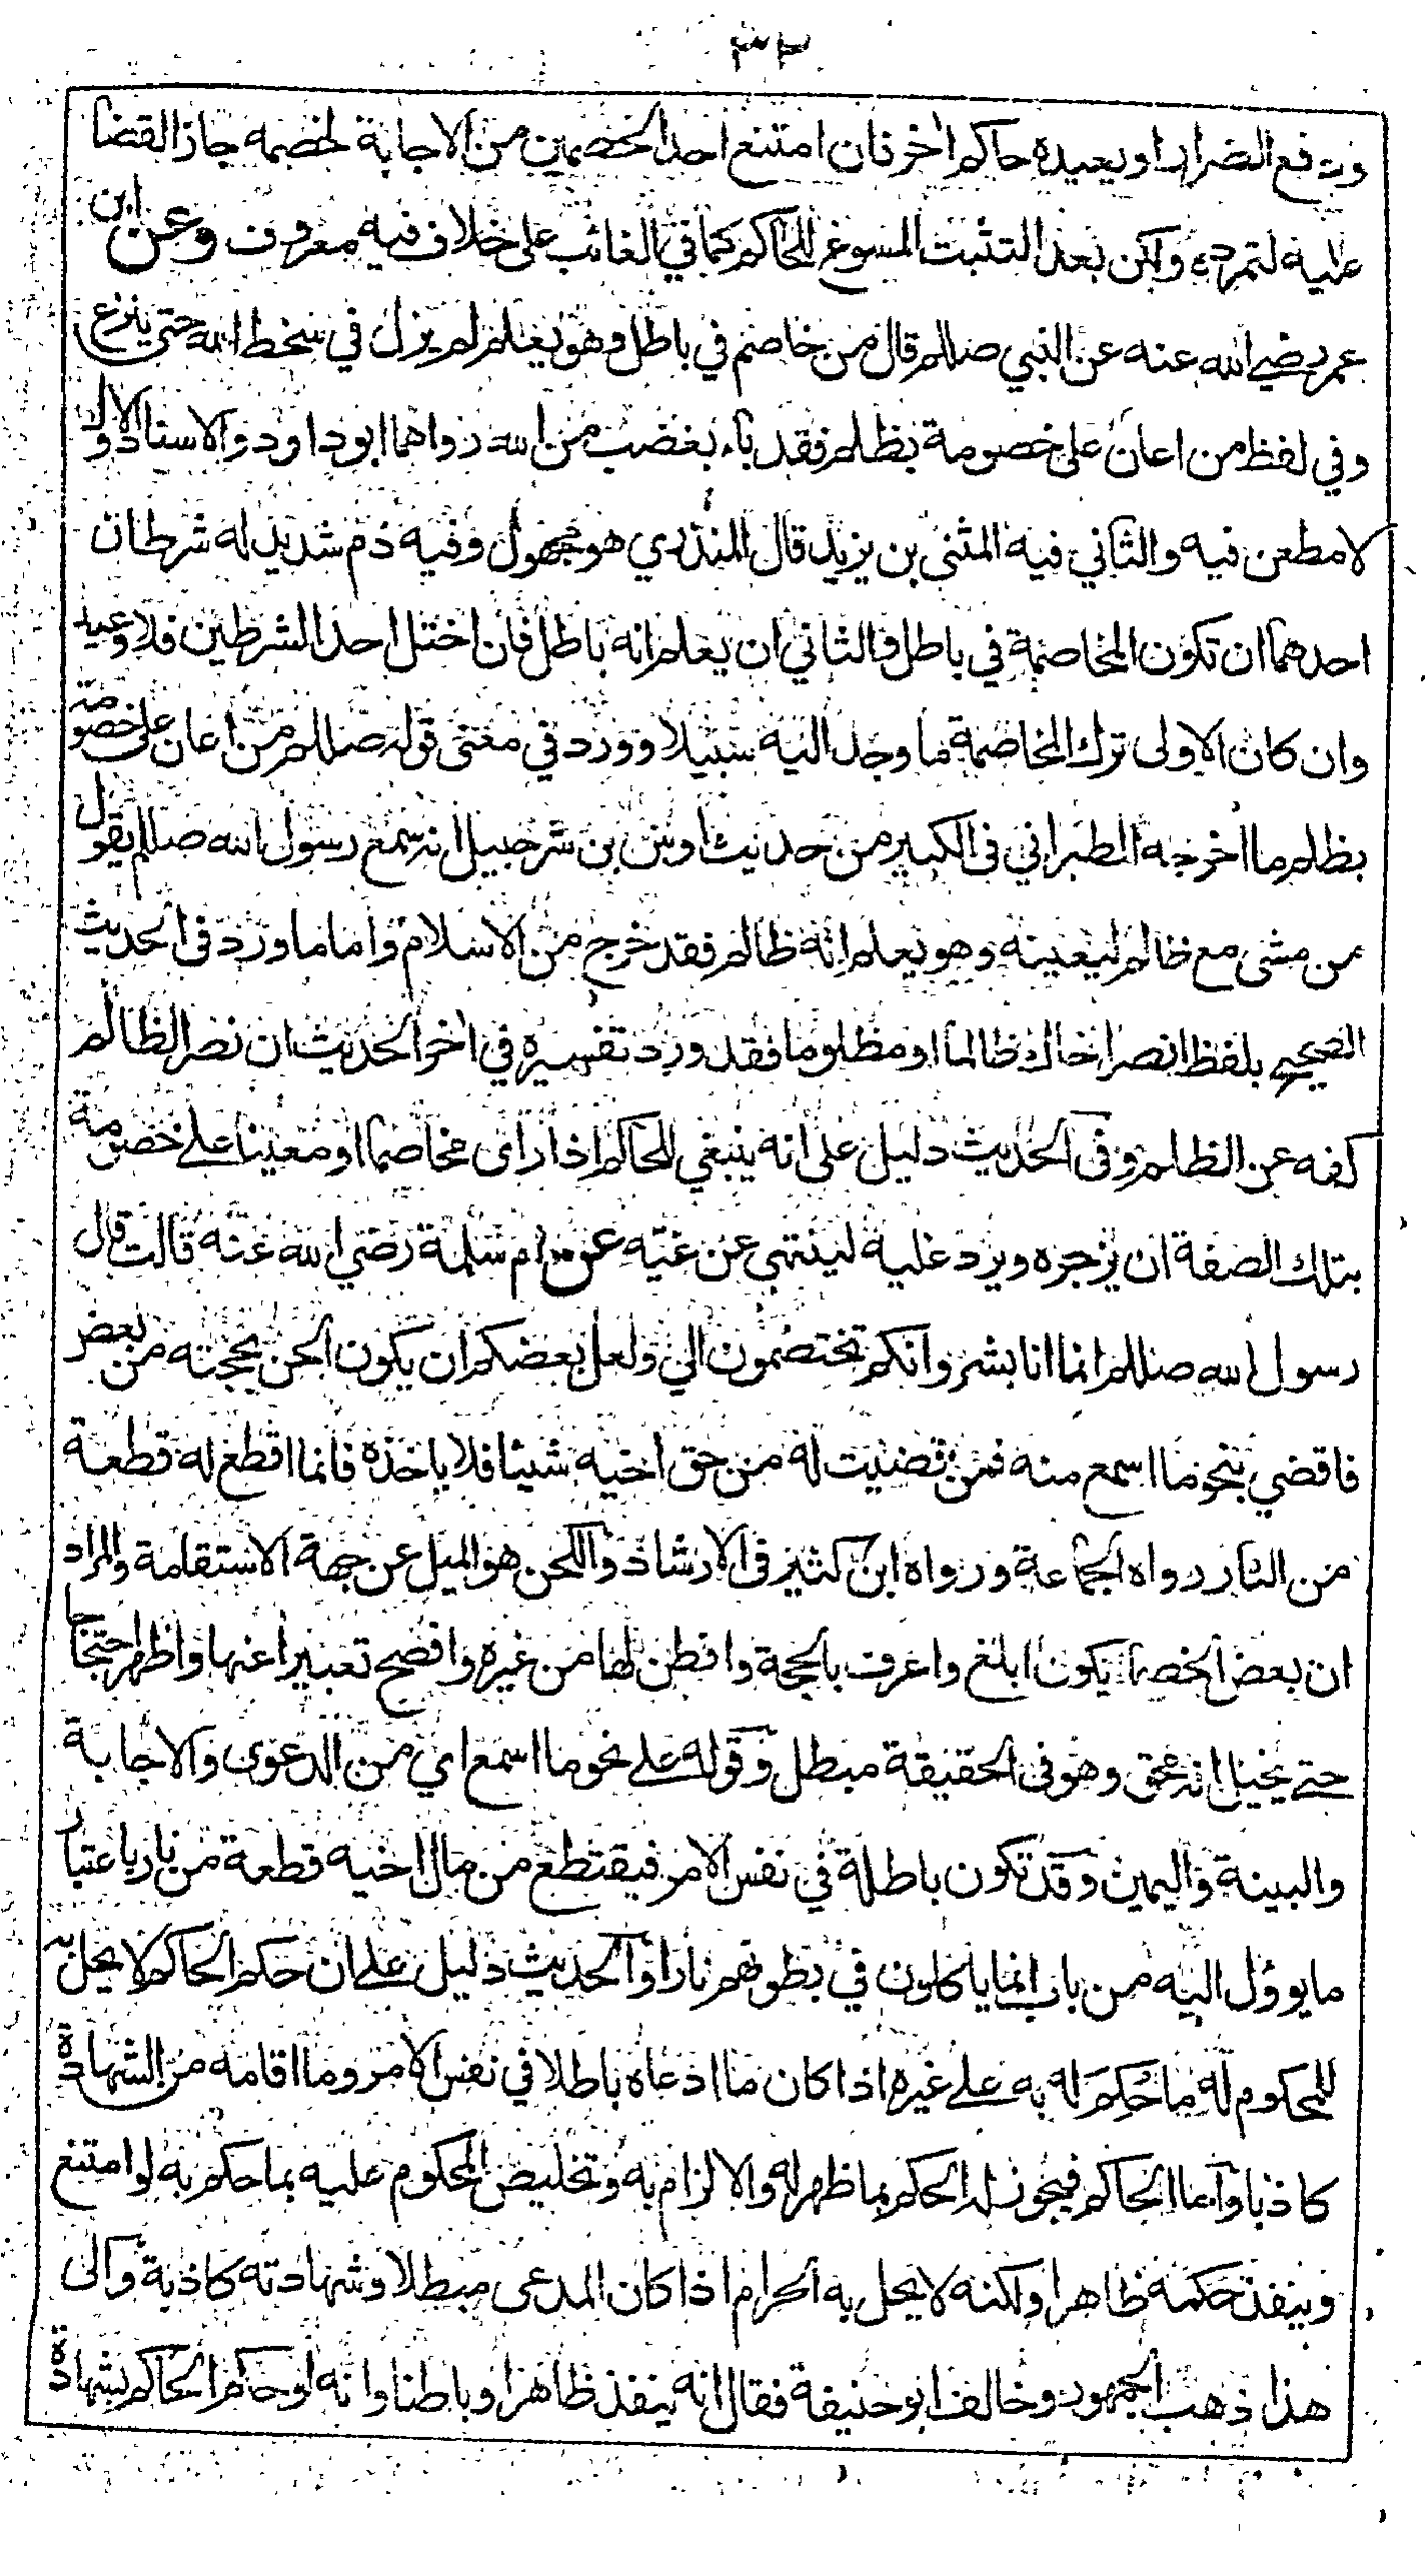 ٣٣
ودفع الضرار او يعيده حاكم اخر فان امتنع احد الخصمين من الاجابة لخصمه جاز القضا
عليه لتمرده ولكن بعد التثبت المسوغ للحاكم كما في الغائب على خلاف فيه معروف وعن ابن
عمر رضي الله عنه عن النبي صللم قال من خاصم في باطل وهو يعلم لم يزل في سخط الله حتى ينزع
وفي لفظ من اعان على خصومة بظلم فقد باء بغضب من الله رواهما ابو داود والاسناد الاول
لا مطعن فيه والثاني فيه المثنى بن يزيد قال المنذري هو مجهول وفيه ذم شديد له شرطان
احدهما ان تكون المخاصمة في باطل والثاني ان يعلم انه باطل فان اختل احد الشرطين فلا وعيد
وان كان الاولى ترك المخاصمة ما وجد اليه سبيلا وورد في معنى قوله صللم من اعان على خصومة
بظلم ما اخرجه الطبراني في الكبير من حديث اوس بن شرحبيل انه سمع رسول الله صللم يقول
من مشى مع ظالم ليعينه وهو يعلم انه ظالم فقد خرج من الاسلام واما ما ورد في الحديث
الصحيح بلفظ انصر اخاك ظالما او مظلوما فقد ورد تفسيره في اخر الحديث ان نصر الظالم
كفه عن الظلم وفي الحديث دليل على انه ينبغي للحاكم اذا راى مخاصما او معينا على خصومة
بتلك الصفة ان يزجره ويرد عليه لينتهي عن غيه عن ام سلمة رضي الله عنه قالت قال
رسول الله صللم انما انا بشر وانكم تختصمون الي ولعل بعضكم ان يكون الحن بحجته من بعض
فاقضي بنحو ما اسمع منه فمن قضيت له من حق اخيه شيئا فلا ياخذه فانما اقطع له قطعة
من النار رواه الجماعة ورواه ابن كثير في الارشاد واللحن هو الميل عن جهة الاستقامة والمراد
ان بعض الخصماء يكون ابلغ واعرف بالحجة وافطن لها من غيره وافصح تعبيرا عنها واظهر احتجاجا
حتى يخيل انه محق وهو في الحقيقة مبطل وقوله على نحو ما اسمع اي من الدعوى والاجابة
والبينة واليمين وقد تكون باطلة في نفس الامر فيقتطع من مال اخيه قطعة من نار باعتبار
ما يوؤل اليه من باب انما ياكلون في بطونهم نارا والحديث دليل على ان حكم الحاكم لا يحل به
للمحكوم له ما حكم له به على غيره اذا كان ما ادعاه باطلا في نفس الامر وما اقامه من الشهادة
كاذبا واما الحاكم فيجوز له الحكم بما ظهر له والالزام به وتخليص المحكوم عليه بما حكم به لو امتنع
وينفذ حكمه ظاهرا ولكنه لا يحل به الحرام اذا كان المدعى مبطلا وشهادته كاذبة والى
هذا ذهب الجمهور وخالف ابو حنيفة فقال انه ينفذ ظاهرا وباطنا وانه لو حكم الحاكم بشهادة